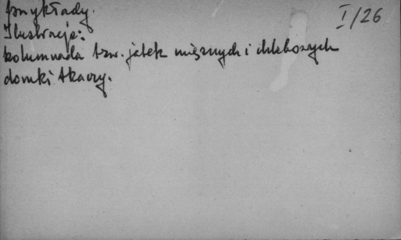 przykłady.
I/26
Ilustracje:
kolumnada tzw. jatek mięsnych i chlebowych
domki tkaczy.